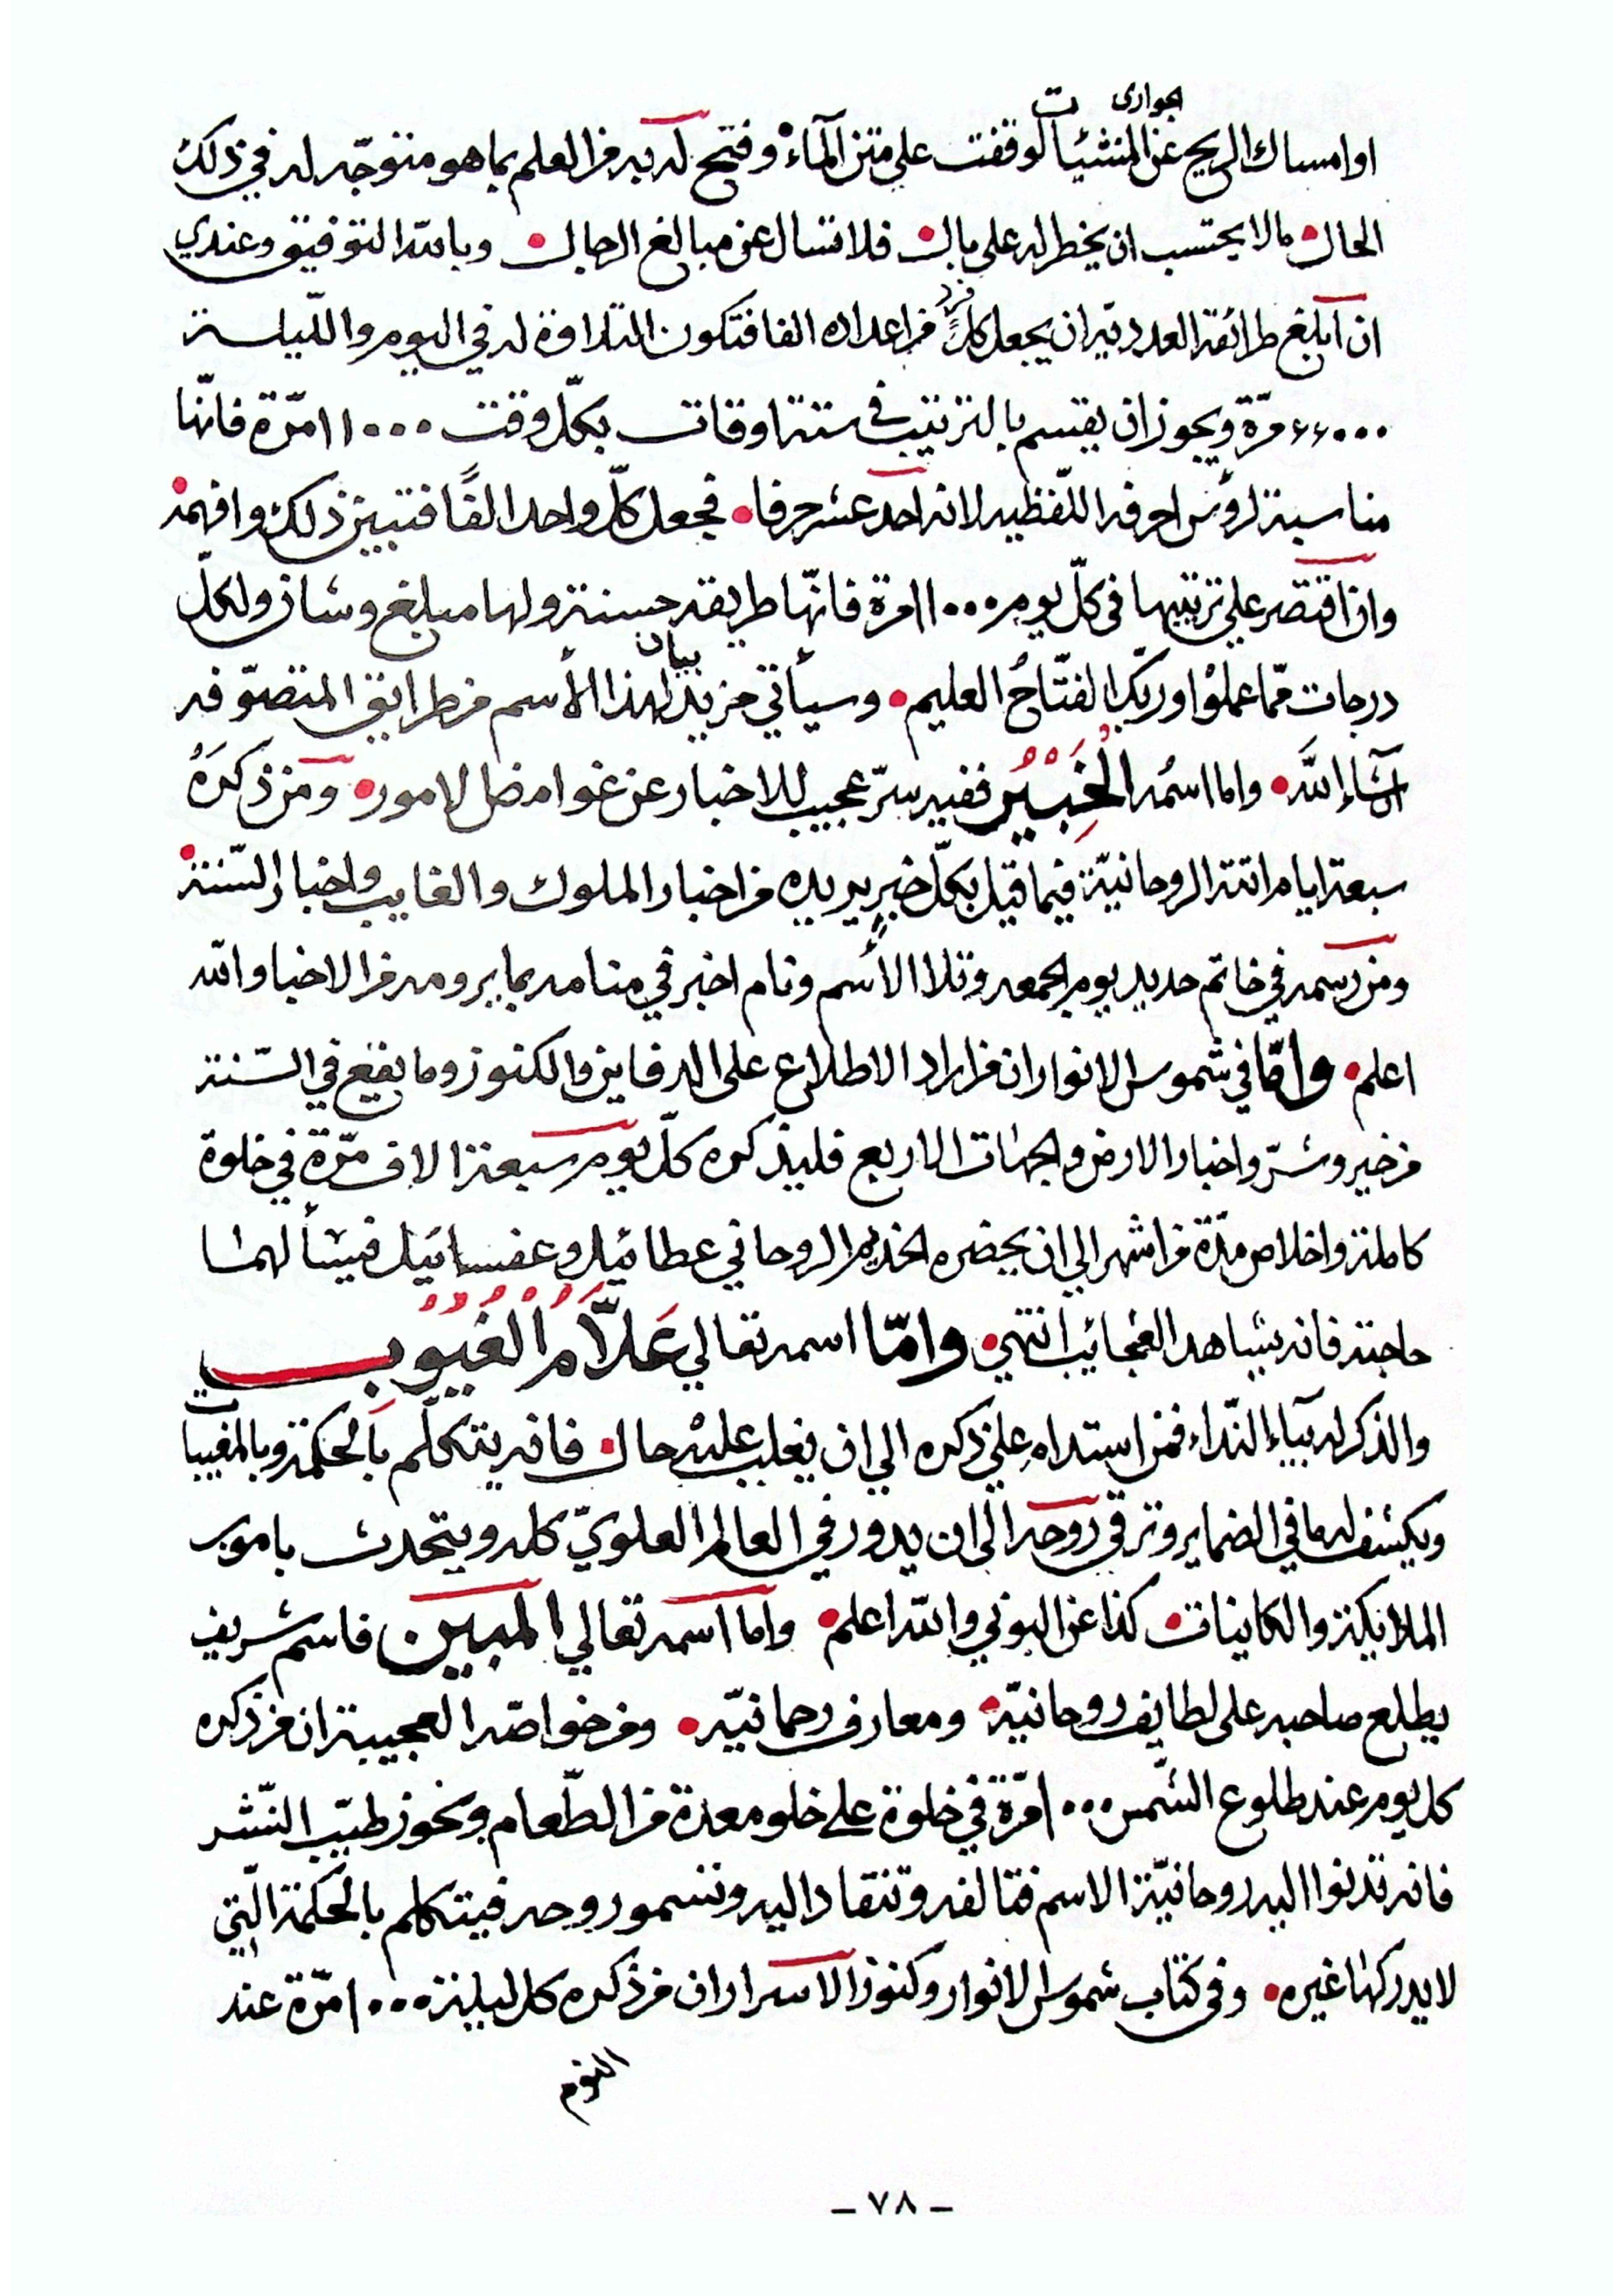 الجوارى ت
او امساك الريح عن المنشئيا لوقفت على متن المآء وفتح له به من العلم بما هو متوجّه له في ذلك
الحال مالا يحتسب ان يخطر له على بال فلا تسال عن مبالغ الرجال وبالله التوفيق وعندي
فرد
ان ابلغ طرائقه العدديّه ان يجعل كل من اعداده الفا فتكون التلاوة له في اليوم والليلة
٦٦٠٠٠ مرّة ويجوز ان يقسم بالترتيب فى ستة اوقات بكلّ وقت ١١٠٠٠ مرّة فانّها
مناسبة لرؤس احرفه اللّفظيه لانه احد عشر حرفا فجعل كلّ واحد الفًا فتبين ذلك وافهمه
وان اقتصر على ترتيبها فى كلّ يوم ١١٠٠٠ مرة فانّها طريقه حسنة ولها مبلغ وشان ولكلّ
بيان
درجات ممّا عملوا وربّك الفتّاحُ العليم وسيأتي مزيد لهذا الأسم من طرايق المتصوّفه
انشاء اللّه واما اسمُه الْخَبِيْرُ ففيه سرّ عجيب للاخبار عن غوامض الامور ومن ذكرَهُ
سبعة ايام اتته الروحانيّة فيما قيل بكلّ خبرٍ يريده من اخبار الملوك والغايب واخبار السّنة
ومن رسمه في خاتم حديد يوم الجمعه وتلا الأسم ونام اخبر في منامه بما يرومه من الاخبا والله
اعلم وامّا في شموس الانوار ان من اراد الاطلاع على الدفاين والكنوز وما يقع في السّنة
من خير وشرّ واخبار الارض والجهات الاربع فليذكره كلّ يوم سبعة الاف مرّة في خلوة
كاملة واخلاص مدّة من اشهر الي ان يحضره الخديم الروحاني عطائيل وعفسائيل فيسألهما
حاجته فانه يشاهد العجائب انتهي وامّا اسمه تعالي عَلاَّمُ الْغُيُوْبِ
والذكر له بيآء النّداء فمن استدام علي ذكره الي ان يغلب عليه حال فانه يتكلّم بالحكمة وبالمغيبات
ويكشف له ما في الضماير وترقي روحه الى ان يدور في العالم العلويّ كله ويتحدث بامور
الملايكة والكاينات كذا عن البوني والله اعلم واما اسمه تعالي المبين فاسم شريف
يطلع صاحبه على لطايف روحانيّة ومعارف رحمانيّه ومن خواصّه العجيبة ان من ذكره
كل يوم عند طلوع الشّمس ١٠٠٠ مرّة في خلوة على خلو معدة من الطّعام وبخور طيّب النّشر
فانه تدنوا اليه روحانيّة الاسم فتالفه وتنقاد اليه وتسمو روحه فيتكلم بالحكمة الّتي
لا يدركها غيره وفى كتاب شموس الانوار وكنوز الاسرار ان من ذكره كل ليلة ١٠٠٠ مرّة عند
النوم
ـ ٧٨ ـ